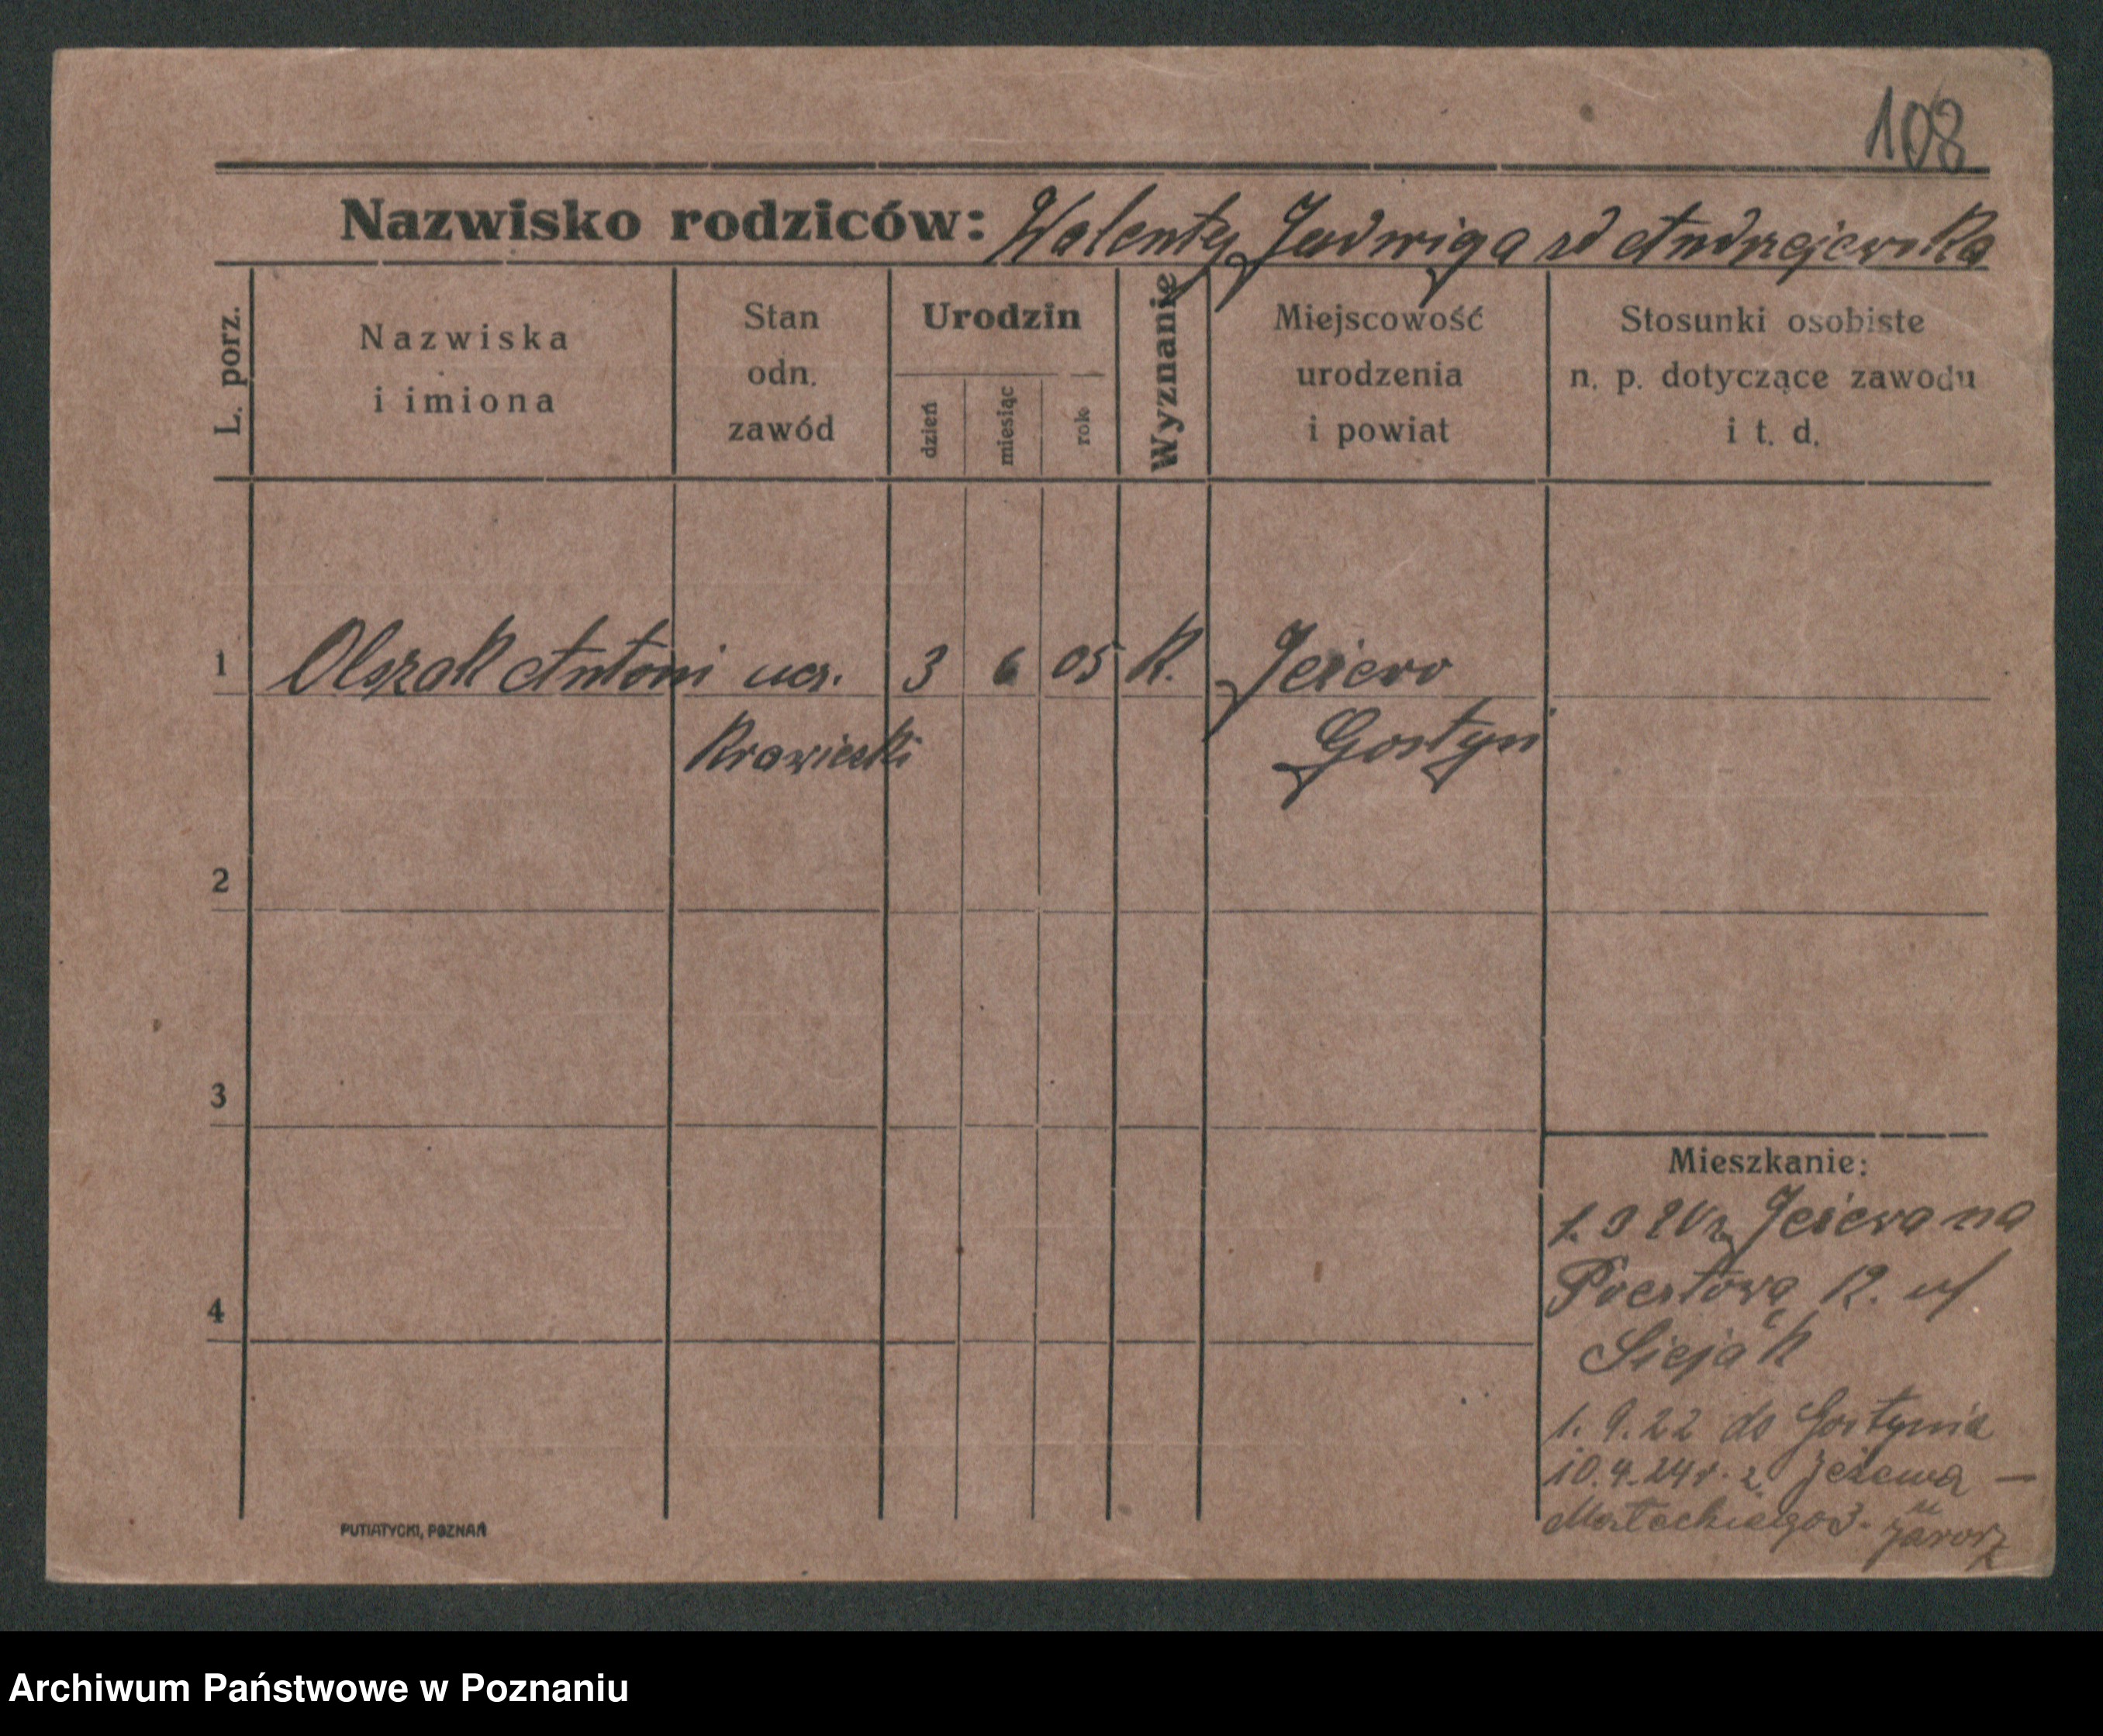 108
Nazwisko rodziców: Walenty Jadwiga zd Andrzejewska
L. porz.
Nazwiska
i imiona
Stan
odn.
zawód
Urodzin
dzień
miesiąc
rok
Wyznanie
Miejscowość
urodzenia
i powiat
Stosunki osobiste
n. p. dotyczące zawodu
i t. d.
1 Olszak Antoni ucz. 3 6 05 K. Jeżewo
Krawiecki Gostyń
2
3
4
Mieszkanie:
z Jeżewa na
Pocztowa 12. u/
Siejak
1. 9. 22 do Gostynia
10.4.24 r. z Jeżewa —
Małeckiego 3. u
PUTIATYCKI, POZNAŃ
Archiwum Państwowe w Poznaniu